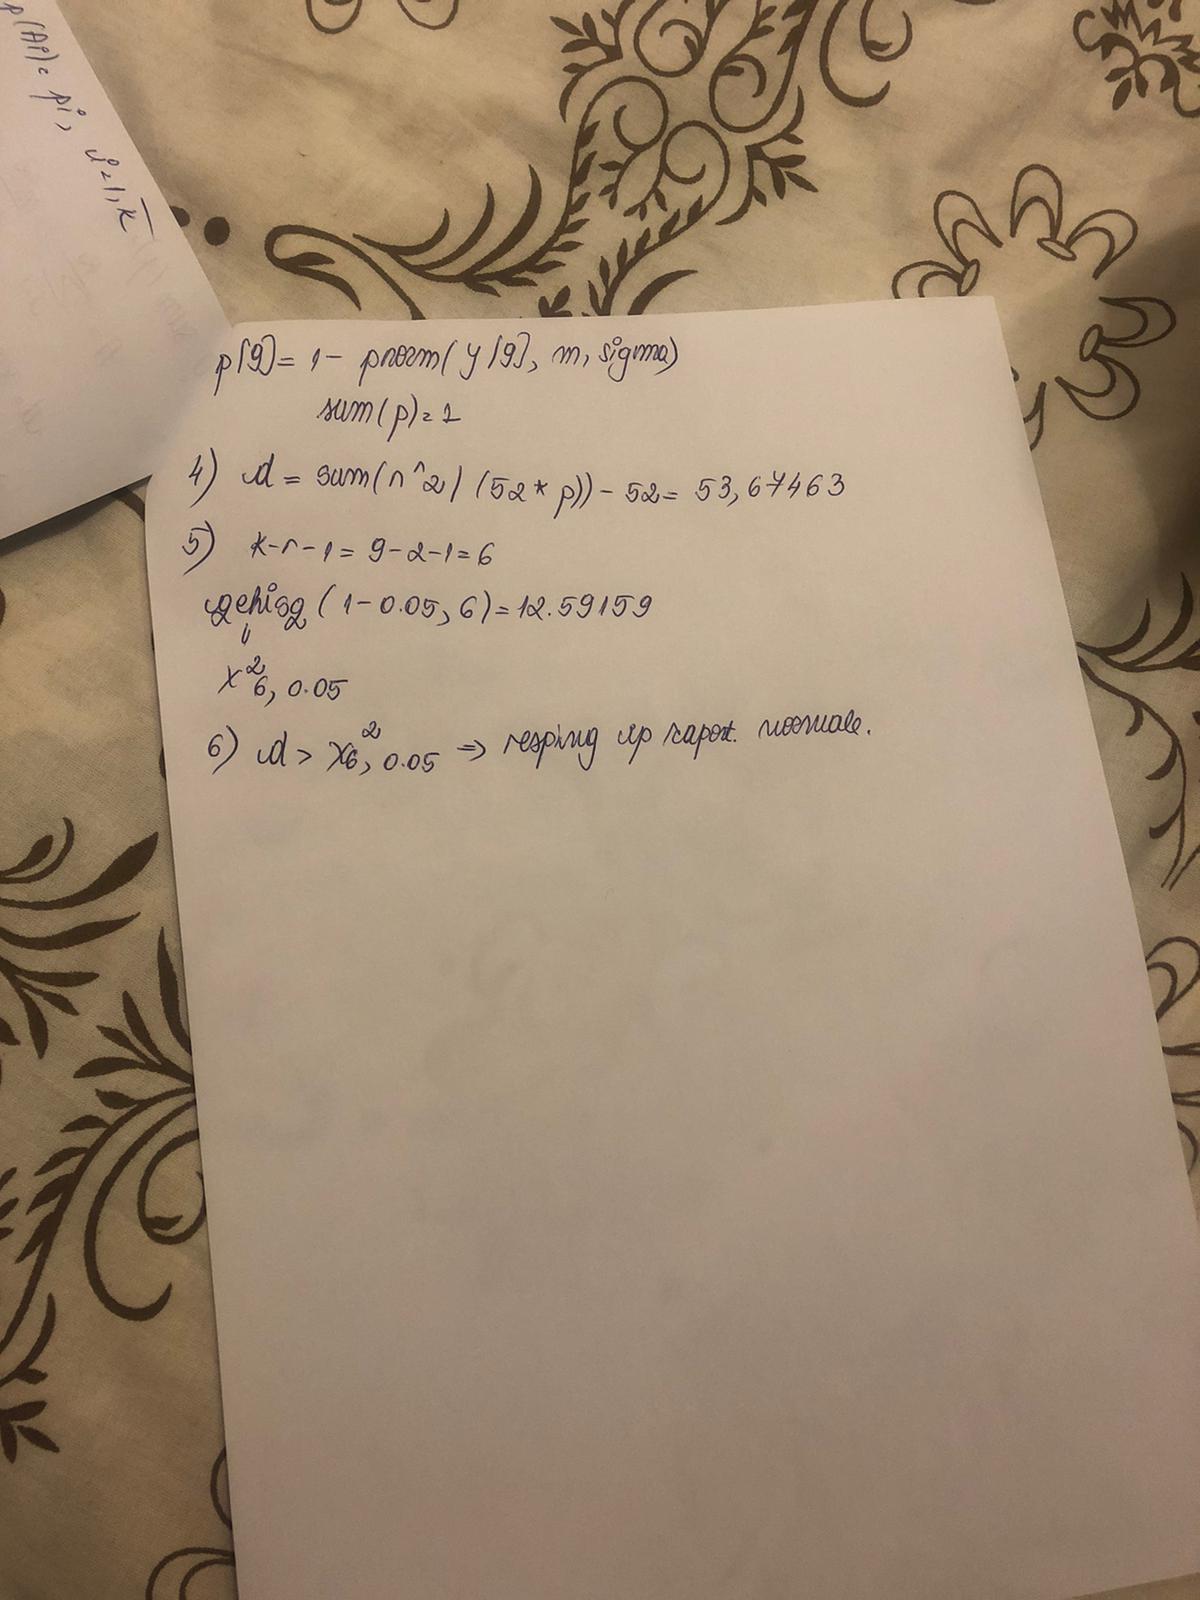 p(Ai) = pi, i=1,k
p[9] = 1- pnorm(y[9], m, sigma)
sum(p)=1
4) d = sum(n^2/(52*p)) - 52 = 53,67463
5) k-r-1 = 9-2-1=6
qchisq (1-0.05, 6) = 12.59159
"
X² 6, 0.05
6) d > X² 6, 0.05 => resping ip repart. normale.